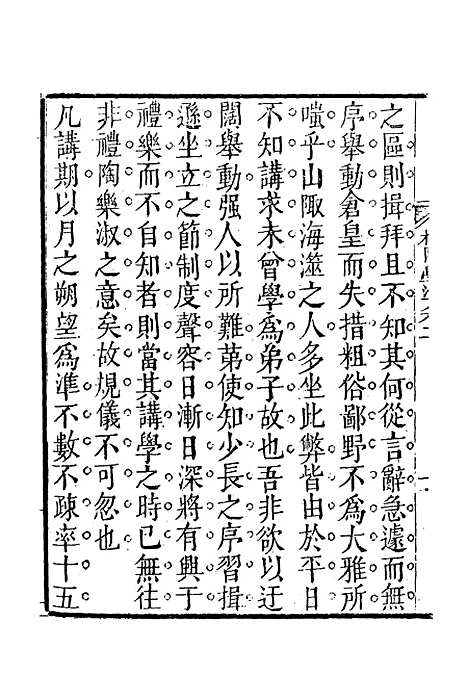 之區則揖拜且不知其何從言辭急遽而無
序舉動倉皇而失措粗俗鄙野不爲大雅所
嗤乎山陬海澨之人多坐此弊皆由於平日
不知講求未曾學爲弟子故也吾非欲以迂
闊舉動强人以所難第使知少長之序習揖
遜坐立之節制度聲容日漸日深將有興于
禮樂而不自知者則當其講學之時已無往
非禮陶樂淑之意矣故規儀不可忽也
凡講期以月之朔望爲準不數不疎率十五